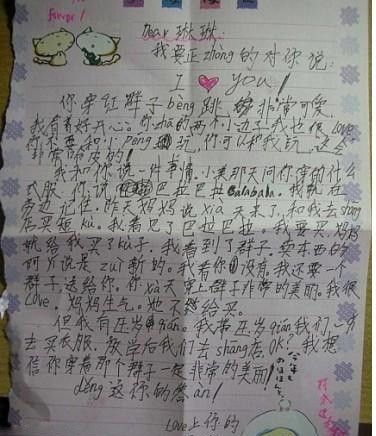 Dear 琳琳:
我要正zhòng的对你说:
I you!
你穿红群子bèng跳 非常可爱,
我看着好开心。你zhā的两个小边子我也很Love,
你不要和小péng 玩,你可以和我玩,
非常 皮的!
我和你说一件事情,小美那天问你穿的什么
衣服,你说 巴拉巴拉balabala。我就在
旁边记住。昨天妈妈说xià天来了,和我去shāng
店买短kù。我看见了巴拉巴拉。我要买妈妈
就给我买了kù子。我看到了群子。卖东西的
阿yí说是zuì新的。我看你 没有。我还要一个
群子,送给你。你xià天穿上群子非常的美丽。我很
Love。妈妈生气。她不 给买。
但我有压岁qián。我带压岁qián我们一方
去买衣服。放学后我们去shāng店。OK?我想
信你穿着那个群子一定非常的美丽!
děng这你的答àn!
Love上你的